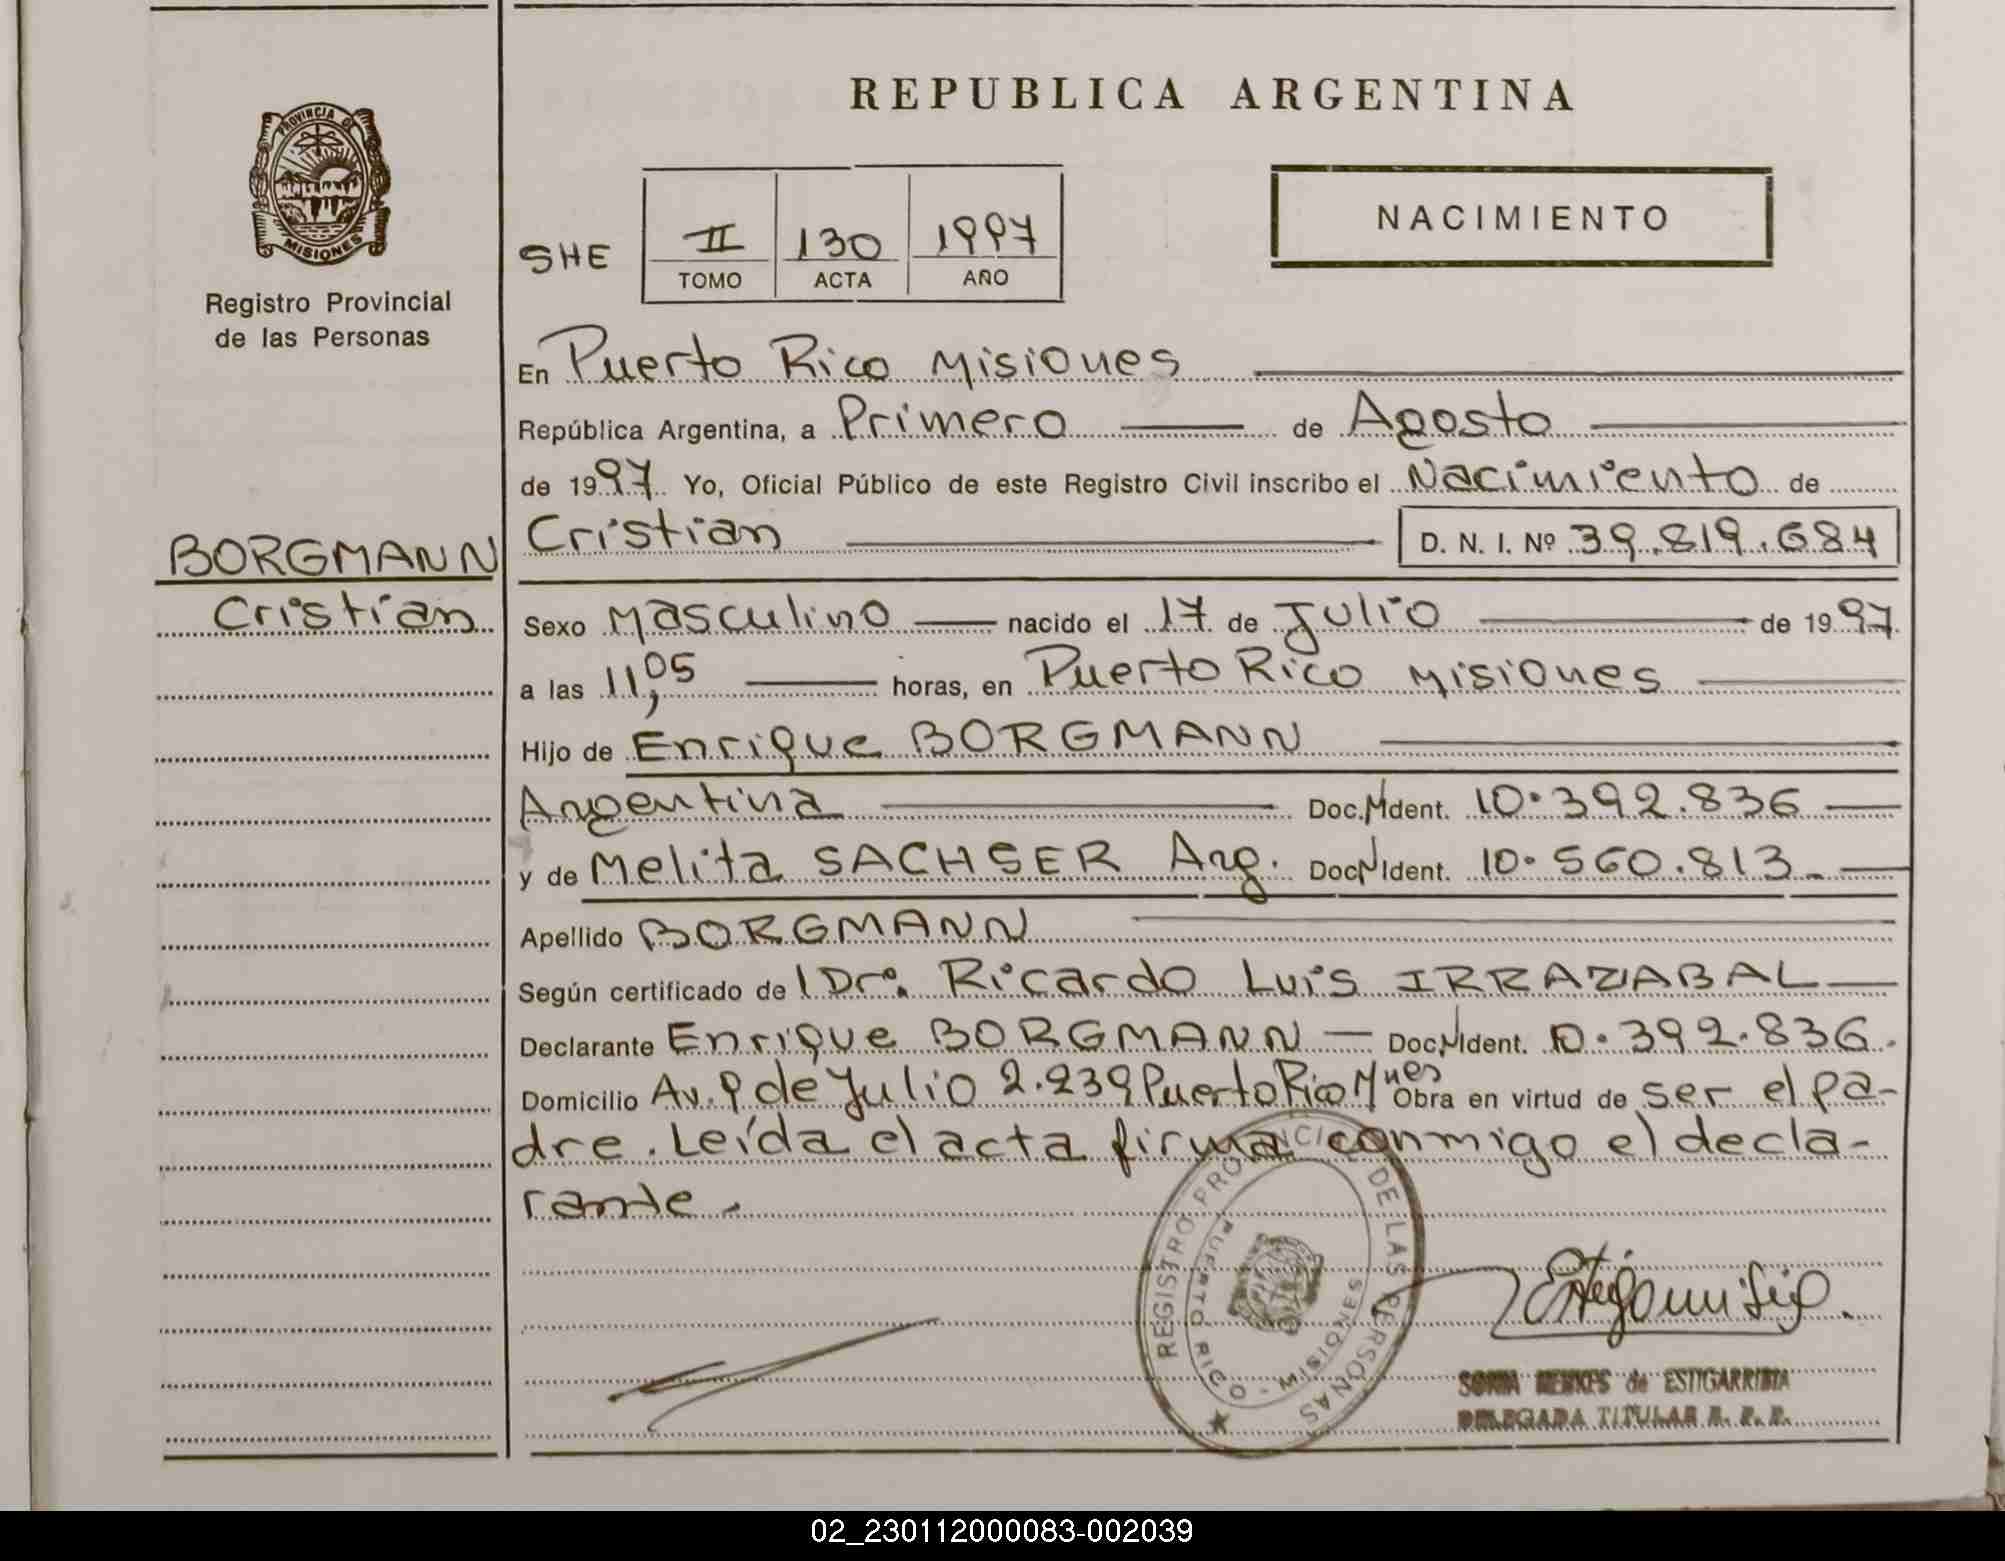 REPUBLICA ARGENTINA
PROVINCIA DE
MISIONES
Registro Provincial
de las Personas
SHE
II 130 1997
TOMO ACTA AÑO
NACIMIENTO
En Puerto Rico Misiones
República Argentina, a Primero de Agosto
de 1997 Yo, Oficial Público de este Registro Civil inscribo el Nacimiento de
BORGMANN
Cristian
Cristian D. N. I. Nº 39.819.684
Sexo Masculino nacido el 17 de Julio de 1997
a las 11,05 horas, en Puerto Rico Misiones
Hijo de Enrique BORGMANN
Argentina Doc. M Ident. 10.392.836
y de Melita SACHSER Arg. Doc. N Ident. 10.560.813.
Apellido BORGMANN
Según certificado de l Dr. Ricardo Luis IRRAZABAL
Declarante Enrique BORGMANN Doc. N Ident. 10.392.836.
Domicilio Av. 9 de Julio 2.239 Puerto Rico Mnes Obra en virtud de ser el pa-
dre. Leída el acta firma conmigo el decla-
rante.
REGISTRO PROVINCIAL DE LAS PERSONAS
PUERTO RICO - MISIONES
SONIA MENKES de ESTIGARRIBIA
DELEGADA TITULAR R. P. P.
02_230112000083-002039